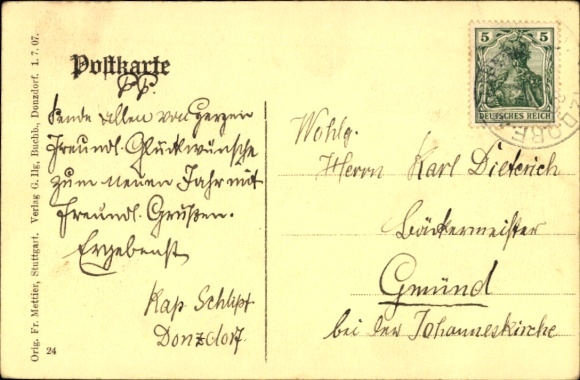 Postkarte
P.P.
Sende allen von Herzen
Freundl. Glückwünsche
zum neuen Jahr mit
freundl. Grüßen.
Ergebenst
Kap. Schlipf
Donzdorf
Wohlg.
Herrn Karl Dieterich
Bäckermeister
Gmünd
bei der Johanneskirche
5 5
DEUTSCHES REICH
Orig. Fr. Mettier, Stuttgart. Verlag G. Ilg, Buchb., Donzdorf. 1. 7. 07.
24